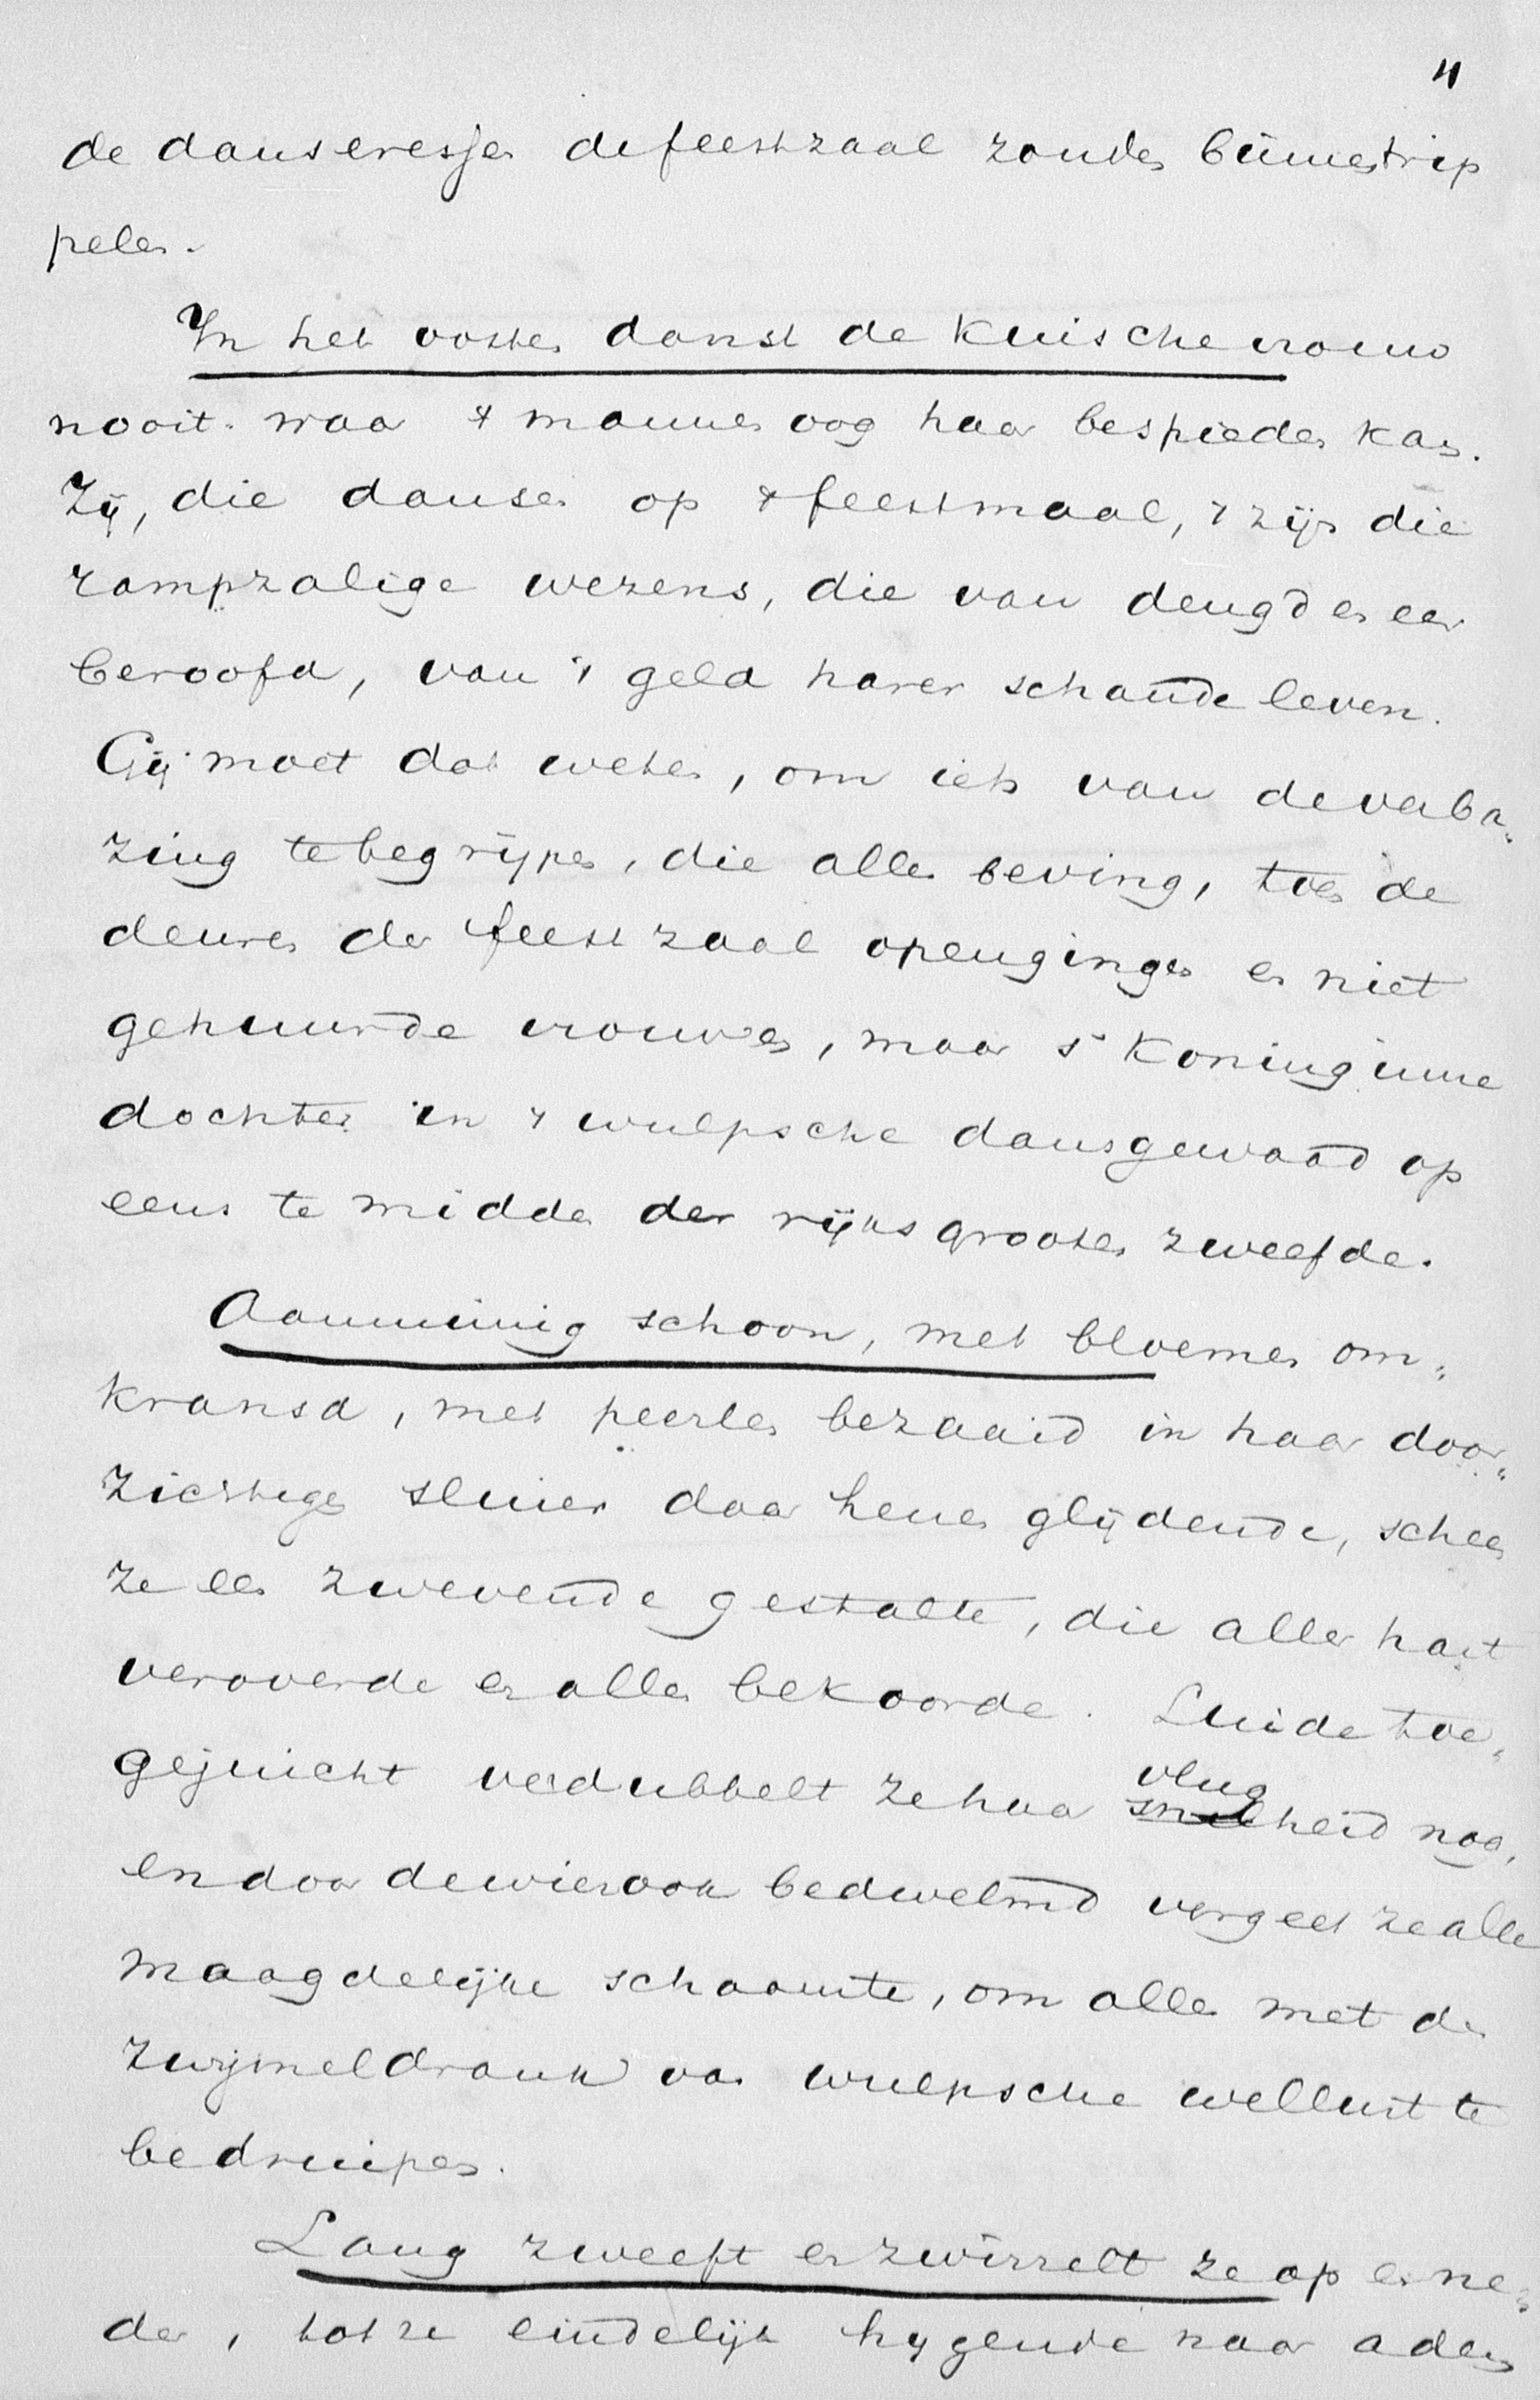 11
de danseresjes de feestzaal zouden binnentrip
pelen.
In het oosten danst de kuische vrouw
nooit. waar 't mannenoog haar bespieden kan.
Zij, die dansen op 't feestmaal, 't zijn die
rampzalige wezens, die van deugd en eer
beroofd, van 't geld harer schande leven.
Gij moet dat weten, om iets van de verba„
zing te begrijpen, die allen beving, toen de
deuren der feestzaal opengingen en niet
gehuurde vrouwen, maar 's Koninginne
dochter in 't wulpsche dansgewaad op
eens te midden der rijksgrooten zweefde.
Aanminnig schoon, met bloemen om„
kransd, met peerlen bezaaid in haar door„
zichtigen sluier daar henen glijdende, scheen
ze een zwevende gestalte, die aller hart
veroverde en allen bekoorde. Luide toe„
gejuicht verdubbelt ze haar vlug
snelheid nog,
en door de wierook bedwelmd vergeet ze alle
maagdelijke schaamte, om allen met den
zwijmeldrank van wulpsche wellust te
bedruipen.
Lang zweeft en zwirrelt ze op en ne„
der, tot ze eindelijk hygende naar adem